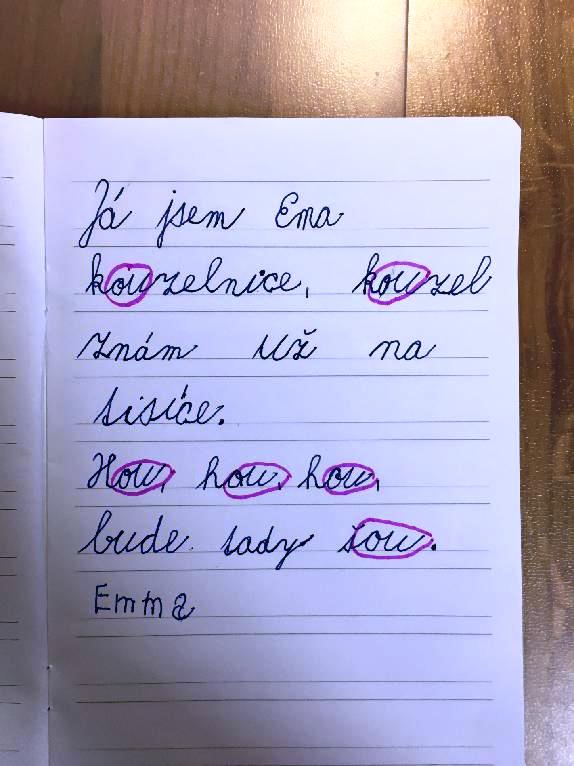 Já jsem Ema
kouzelnice, kouzel
znám už na
tisíce.
Hou, hou, hou,
bude tady šou.
Emma